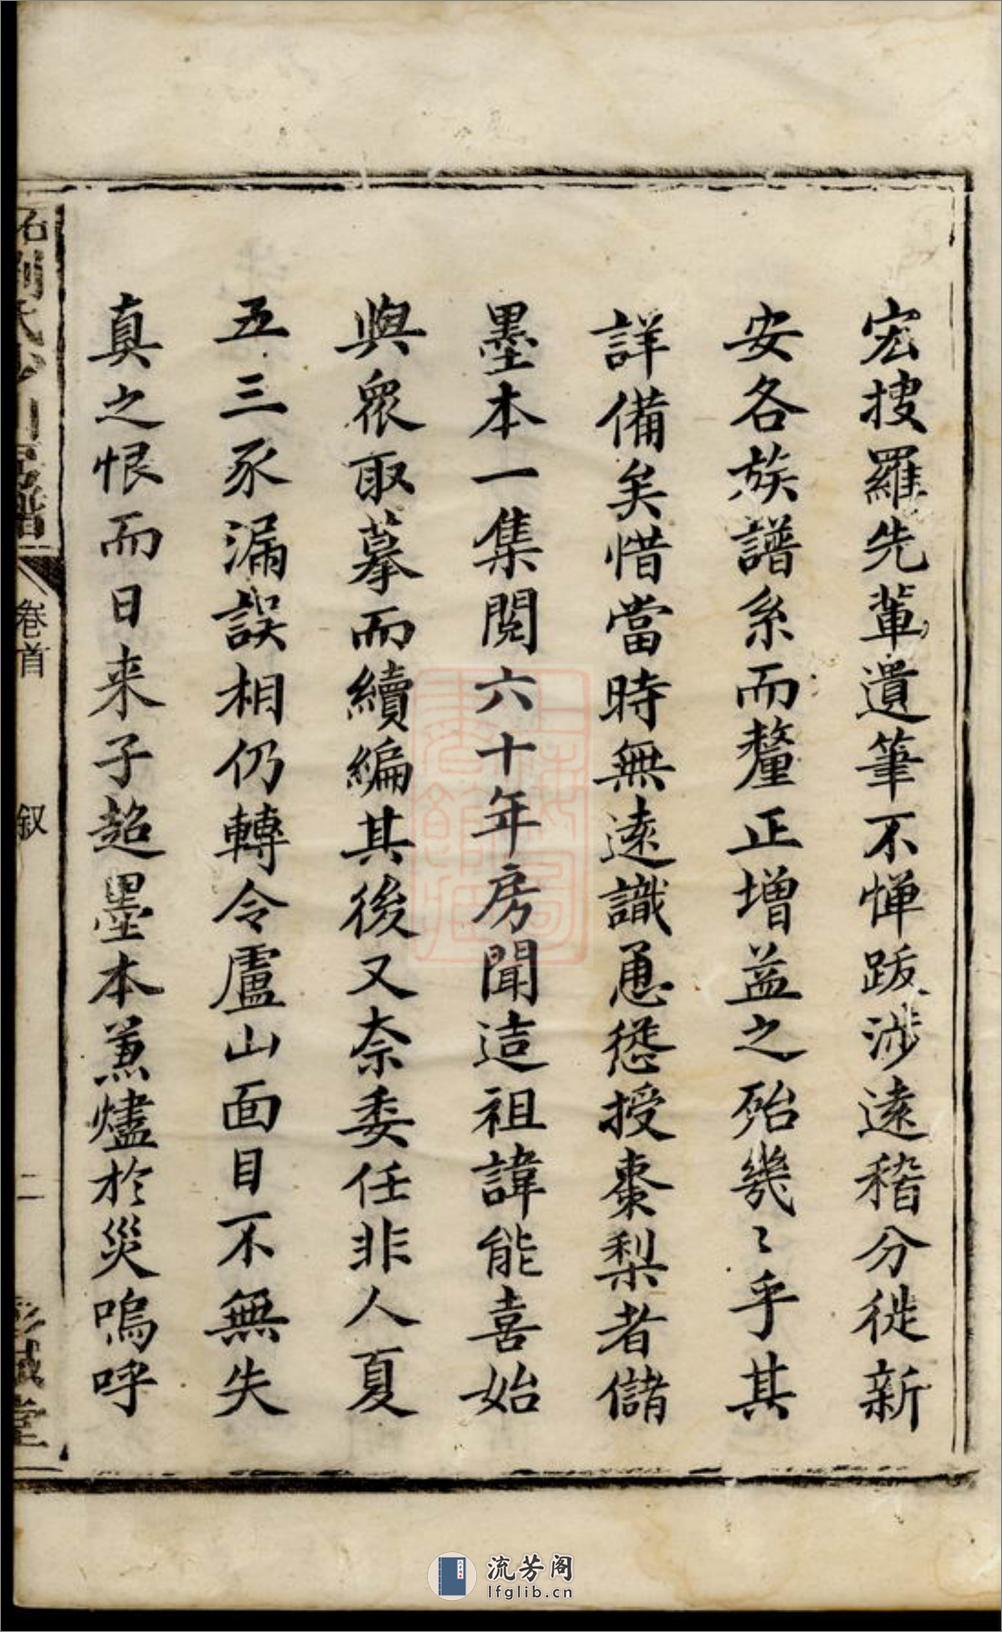 宏搜羅先軰遺筆不憚跋涉遠稽分徙新
安各族譜系而釐正增益之殆幾〻乎其
詳備矣惜當時無遠識慫慂授棗梨者儲
墨本一集閱六十年房聞迼祖諱能喜始
與眾取摹而續編其後又奈委任非人夏
五三豕漏誤相仍轉令廬山面目不無失
真之恨而日来子超墨本蒸燼於災嗚呼
卷首
叙
二
流芳阁
lfglib.cn